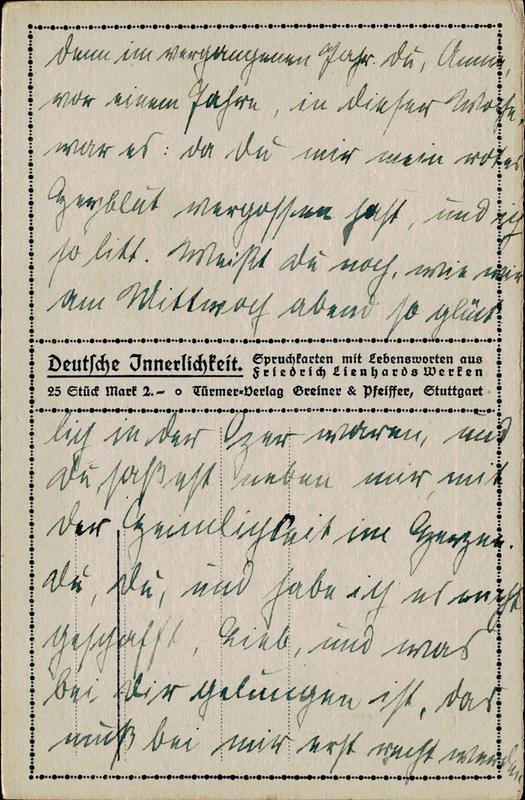 denn im vergangenen Jahr. Du, Anne,
vor einem Jahre, in dieser Woche,
war es: da Du mir mein rotes
Herzblut vergossen hast, und ich
so litt. Weißt Du noch, wie wir
am Mittwoch abend so glück
Deutsche Innerlichkeit.
Spruchkarten mit Lebensworten aus
Friedrich Lienhards Werken
25 Stück Mark 2.– o Türmer-Verlag Greiner & Pfeiffer, Stuttgart
lich in der Oper waren, und
Du saßest neben mir, mit
der Heimlichkeit im Herzen.
Du, Du, und habe ich es nicht
geschafft, Lieb, und was
bei Dir gelungen ist, das
muß bei mir erst recht werden